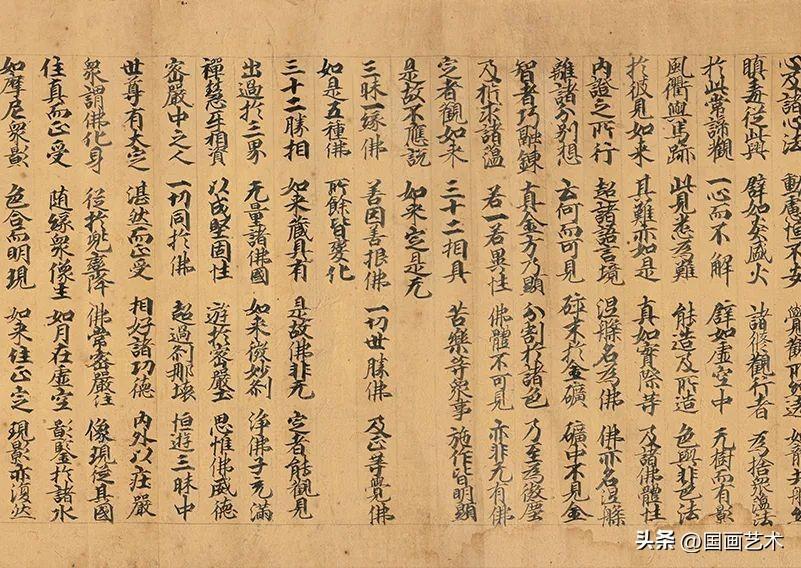 心及諸心法 動處恒不安
瞋毒從此興 譬如盛火 諸修觀行者 為捨衆蘊法
於此常諦觀 一心而不懈 譬如虛空中 无樹而有影
風衢與鳥跡 此見悉為難 能造及所造 色與非色法
於彼見如來 其難亦如是 真如實際等 及諸佛體性
內證之所行 超諸語言境 涅槃名為佛 佛亦名涅槃
離諸分別想 云何而可見 碎末於金礦 礦中不見金
智者巧融鍊 真金方乃顯 分割於諸色 乃至為微塵
及析求諸蘊 若一若異性 佛體不可見 亦非无有佛
定者觀如來 三十二相具 苦樂等衆事 施作皆明顯
是故不應說 如來定是无
三昧一緣佛 善因善根佛 一切世勝佛 及正等覺佛
如是五種佛 所餘皆變化
三十二勝相 如來藏具有 是故佛非无 定者能觀見
出過於三界 无量諸佛國 如來微妙刹 淨佛子充滿
禪慧互相資 以成堅固性 遊於密嚴土 思惟佛威德
密嚴中之人 一切同於佛 超過刹那壞 恒遊三昧中
世尊有大定 湛然而正受 相好諸功德 內外以莊嚴
衆謂佛化身 從於兜率降 佛常密嚴住 像現從其國
住真而正受 隨緣衆像生 如月在虛空 影鑒於諸水
如摩尼衆影 色合而明現 如來住正定 現影亦復然
头条 @国画艺术